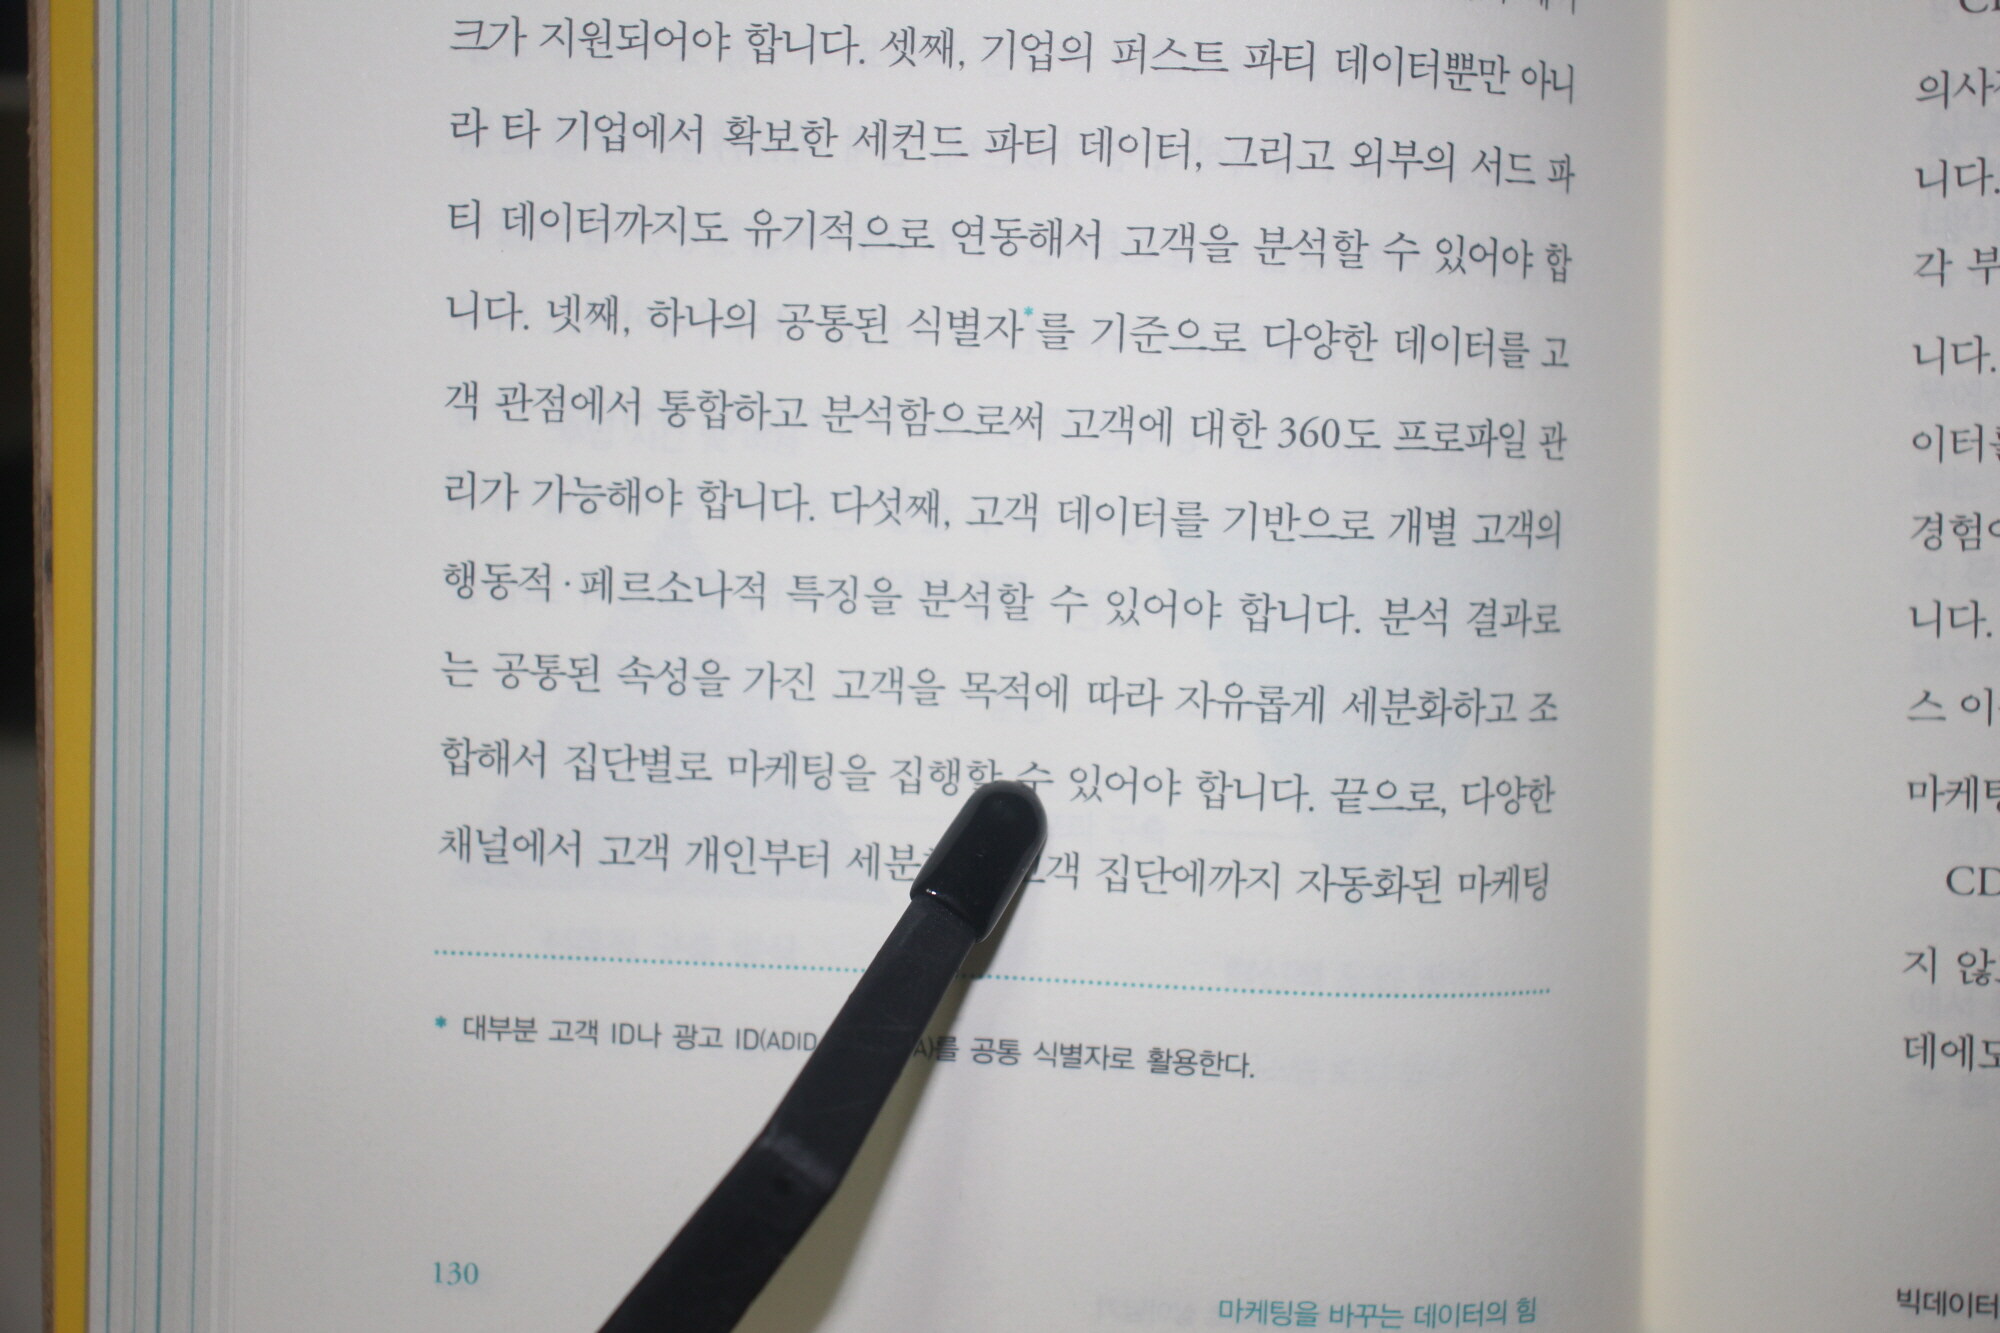 크가 지원되어야 합니다. 셋째, 기업의 퍼스트 파티 데이터뿐만 아니
라 타 기업에서 확보한 세컨드 파티 데이터, 그리고 외부의 서드 파
티 데이터까지도 유기적으로 연동해서 고객을 분석할 수 있어야 합
니다. 넷째, 하나의 공통된 식별자*를 기준으로 다양한 데이터를 고
객 관점에서 통합하고 분석함으로써 고객에 대한 360도 프로파일 관
리가 가능해야 합니다. 다섯째, 고객 데이터를 기반으로 개별 고객의
행동적·페르소나적 특징을 분석할 수 있어야 합니다. 분석 결과로
는 공통된 속성을 가진 고객을 목적에 따라 자유롭게 세분화하고 조
합해서 집단별로 마케팅을 집행할 수 있어야 합니다. 끝으로, 다양한
채널에서 고객 개인부터 집단에까지 자동화된 마케팅
* 대부분 고객 ID나 광고 ID(ADID 공통 식별자로 활용한다.
130
마케팅을 바꾸는 데이터의 힘
니다.
각 부
니다.
니다.
스 이
CD
빅데이터